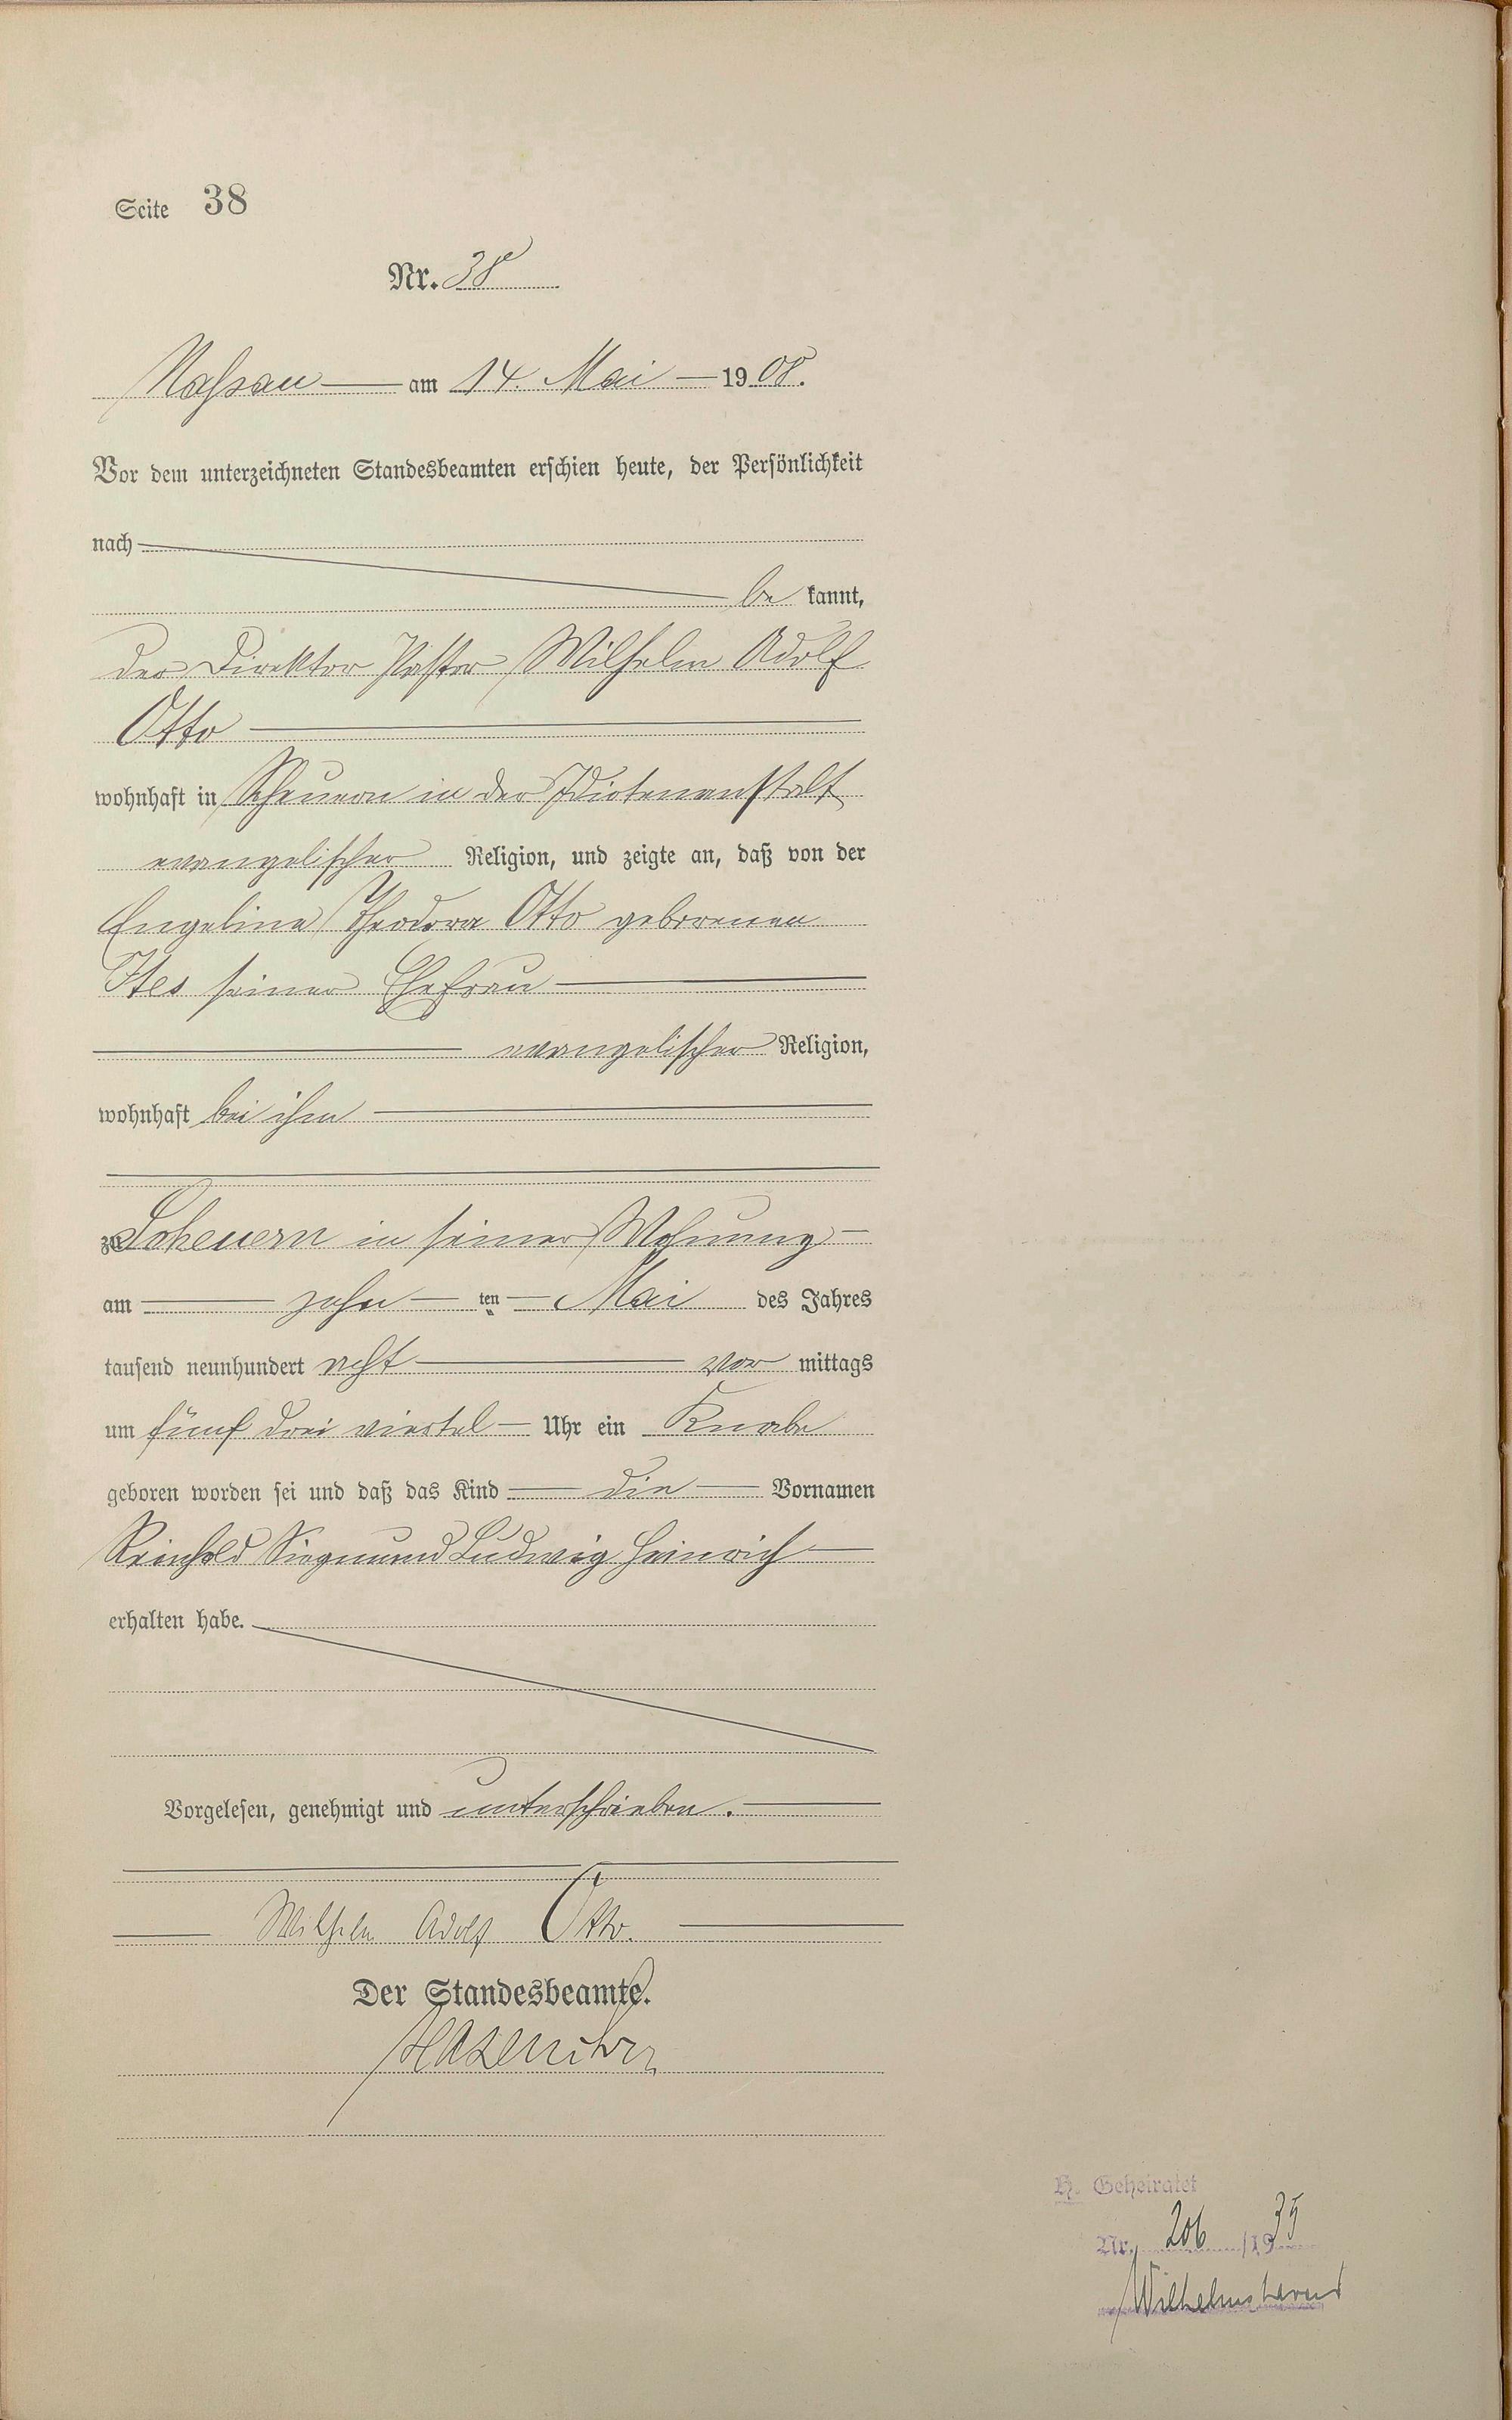 Seite 38
Nr. 38
Nassau am 14. Mai 1908.
Vor dem unterzeichneten Standesbeamten erschien heute, der Persönlichkeit
nach
be kannt,
der Direktor Pastor Wilhelm Adolf
Otto
wohnhaft in Scheuern in der Idiotenanstalt
evangelischer Religion, und zeigte an, daß von der
Engeline Theodora Otto geborenen
Ites seiner Ehefrau
evangelischer Religion,
wohnhaft bei ihm
zu Scheuern in seiner Wohnung
am zehn ten Mai des Jahres
tausend neunhundert acht vor mittags
um fünf drei viertel Uhr ein Knabe
geboren worden sei und daß das Kind die Vornamen
Reinhold Siegmund Ludwig Heinrich
erhalten habe.
Vorgelesen, genehmigt und unterschrieben.
Wilhelm Adolf Otto.
Der Standesbeamte.
H. Geheiratet
Nr. 206 /1935
Wilhelmshaven